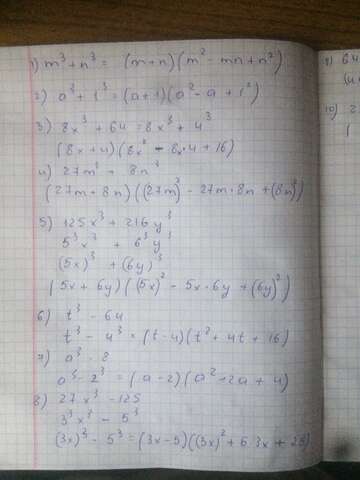 1) m³ + n³ = (m+n)(m² - mn + n²)
2) a³ + 1³ = (a+1)(a² - a + 1²)
3) 8x³ + 64 = 8x³ + 4³
(8x + 4)(8x² - 8x·4 + 16)
4) 27m³ + 8n³
(27m + 8n)((27m)² - 27m·8n + (8n)²)
5) 125x³ + 216y³
5³x³ + 6³y³
(5x)³ + (6y)³
(5x + 6y)((5x)² - 5x·6y + (6y)²)
6) t³ - 64
t³ - 4³ = (t-4)(t² + 4t + 16)
7) a³ - 8
a³ - 2³ = (a-2)(a² + 2a + 4)
8) 27x³ - 125
3³x³ - 5³
(3x)³ - 5³ = (3x-5)((3x)² + 5·3x + 25)
9) 64
10) 2